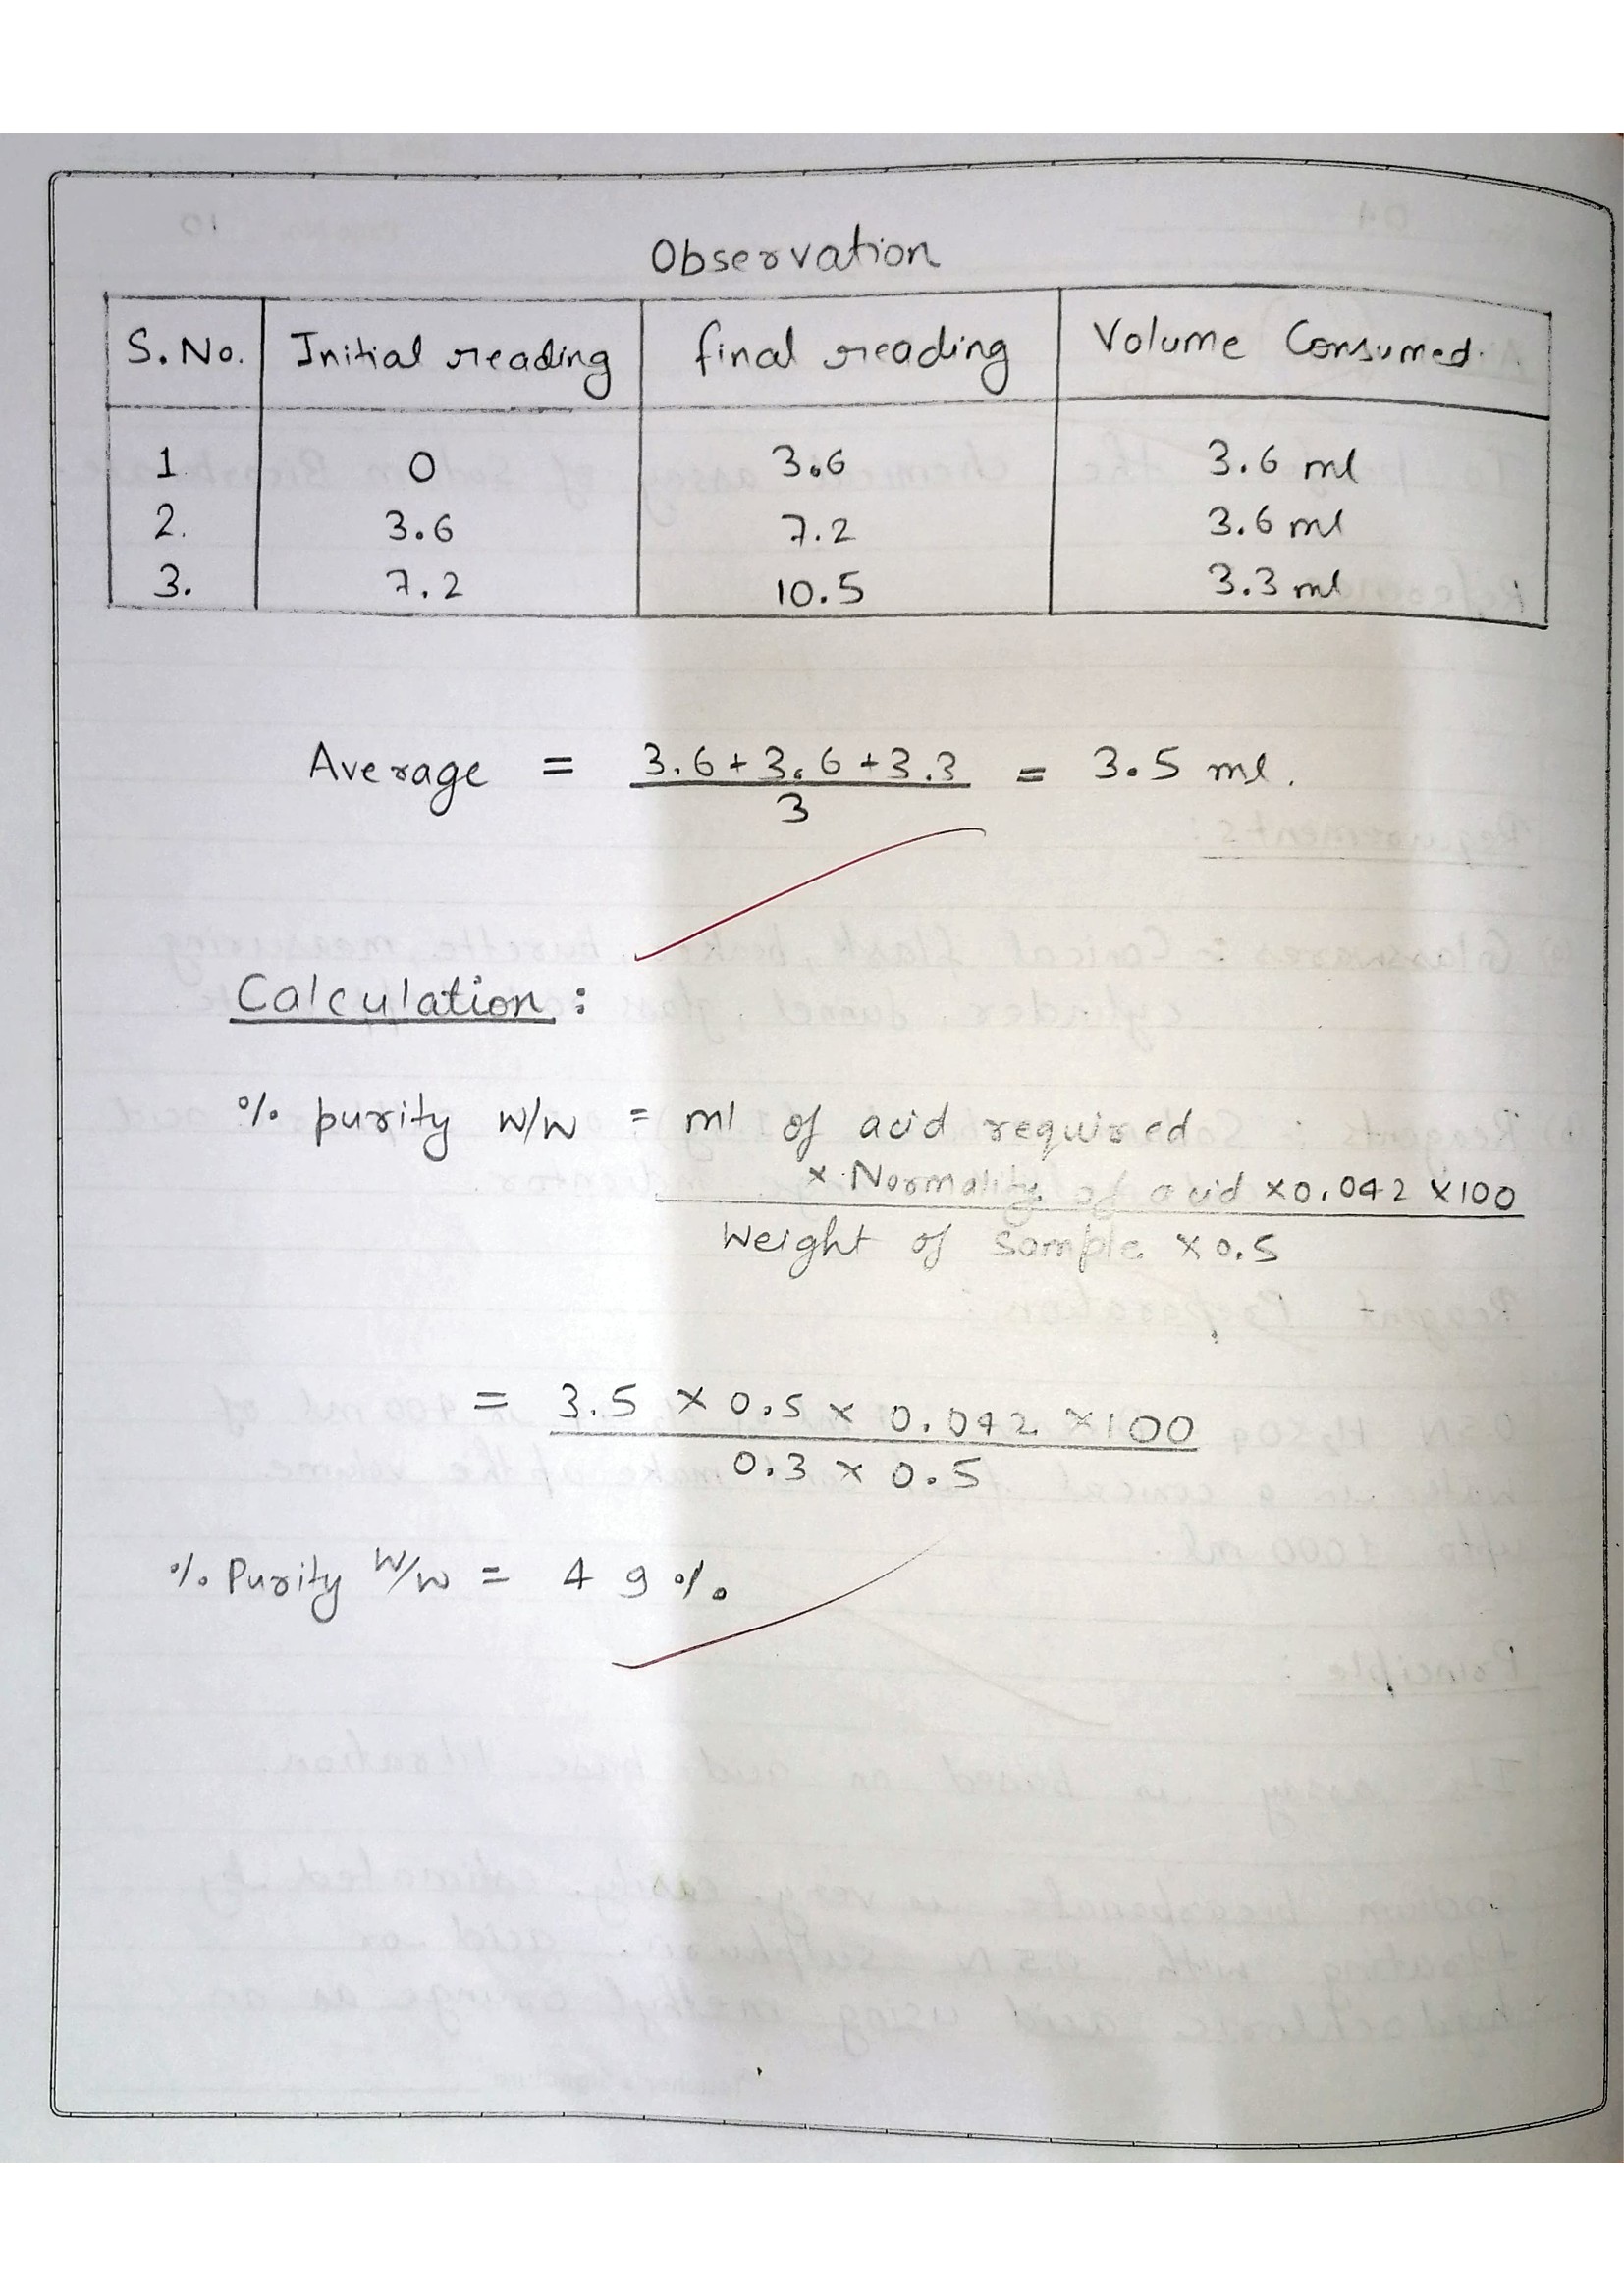 Observation
S.No. Initial reading final reading Volume Consumed.
1 0 3.6 3.6 ml
2. 3.6 7.2 3.6 ml
3. 7.2 10.5 3.3 ml
Average = 3.6+3.6+3.3 = 3.5 ml.
3
Calculation :
% purity W/W = ml of acid required
× Normality of acid ×0.042 ×100
Weight of Sample × 0.5
= 3.5 × 0.5 × 0.042 ×100
0.3 × 0.5
% Purity W/W = 49 %